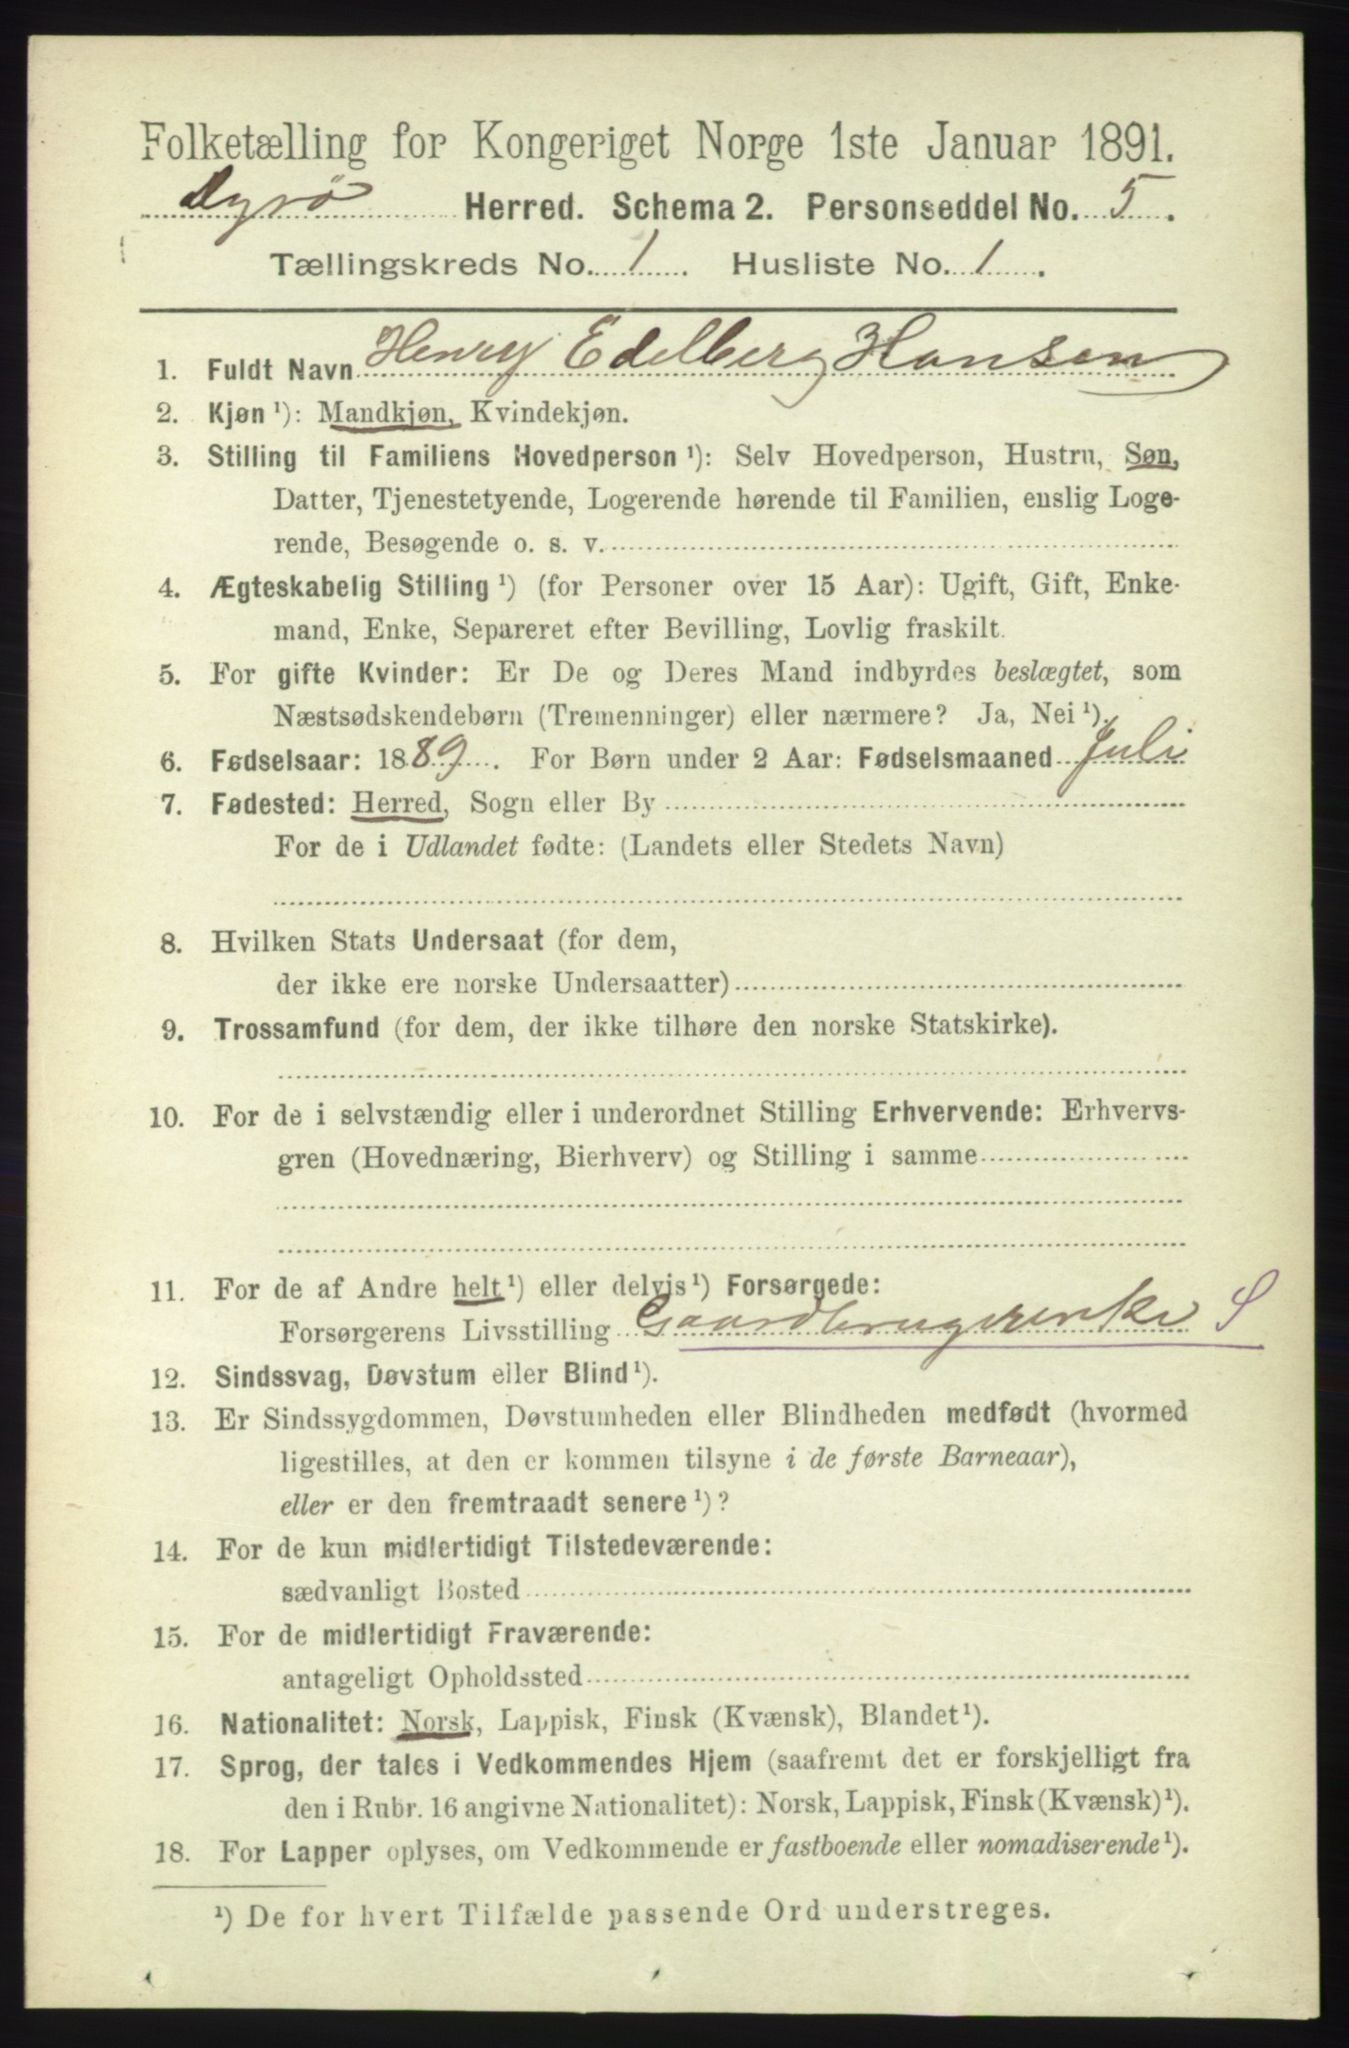 Folketælling for Kongeriget Norge 1ste Januar 1891.
Dyrö Herred. Schema 2. Personseddel No. 5.
Tællingskreds No. 1. Husliste No. 1.
1. Fuldt Navn Henry Edelberg Hansen
2. Kjøn ¹): Mandkjøn, Kvindekjøn.
3. Stilling til Familiens Hovedperson ¹): Selv Hovedperson, Hustru, Søn,
Datter, Tjenestetyende, Logerende hørende til Familien, enslig Loge-
rende, Besøgende o. s. v.
4. Ægteskabelig Stilling ¹) (for Personer over 15 Aar): Ugift, Gift, Enke-
mand, Enke, Separeret efter Bevilling, Lovlig fraskilt.
5. For gifte Kvinder: Er De og Deres Mand indbyrdes beslægtet, som
Næstsødskendebørn (Tremenninger) eller nærmere? Ja, Nei ¹).
6. Fødselsaar: 1889. For Børn under 2 Aar: Fødselsmaaned Juli
7. Fødested: Herred, Sogn eller By
For de i Udlandet fødte: (Landets eller Stedets Navn)
8. Hvilken Stats Undersaat (for dem,
der ikke ere norske Undersaatter)
9. Trossamfund (for dem, der ikke tilhøre den norske Statskirke).
10. For de i selvstændig eller i underordnet Stilling Erhvervende: Erhvervs-
gren (Hovednæring, Bierhverv) og Stilling i samme
11. For de af Andre helt ¹) eller delvis ¹) Forsørgede:
Forsørgerens Livsstilling Gaardbrugerenke S
12. Sindssvag, Døvstum eller Blind ¹).
13. Er Sindssygdommen, Døvstumheden eller Blindheden medfødt (hvormed
ligestilles, at den er kommen tilsyne i de første Barneaar),
eller er den fremtraadt senere ¹)?
14. For de kun midlertidigt Tilstedeværende:
sædvanligt Bosted
15. For de midlertidigt Fraværende:
antageligt Opholdssted
16. Nationalitet: Norsk, Lappisk, Finsk (Kvænsk), Blandet ¹).
17. Sprog, der tales i Vedkommendes Hjem (saafremt det er forskjelligt fra
den i Rubr. 16 angivne Nationalitet): Norsk, Lappisk, Finsk (Kvænsk) ¹).
18. For Lapper oplyses, om Vedkommende er fastboende eller nomadiserende ¹).
¹) De for hvert Tilfælde passende Ord understreges.